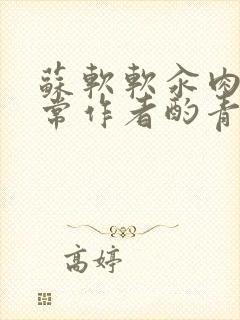 蘇軟軟汆肉
常作者酌青
高婷